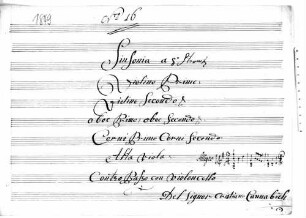 1819
No 16
Sinfonia a 8 Stromti
Violino Primo,
Violino Secondo,
oboe Primo, oboe Secondo,
Corno Primo Corno Secondo
Alto Viola.
Allegro
Contro Basso con Violoncello
Del Signor Cristian Cannabich